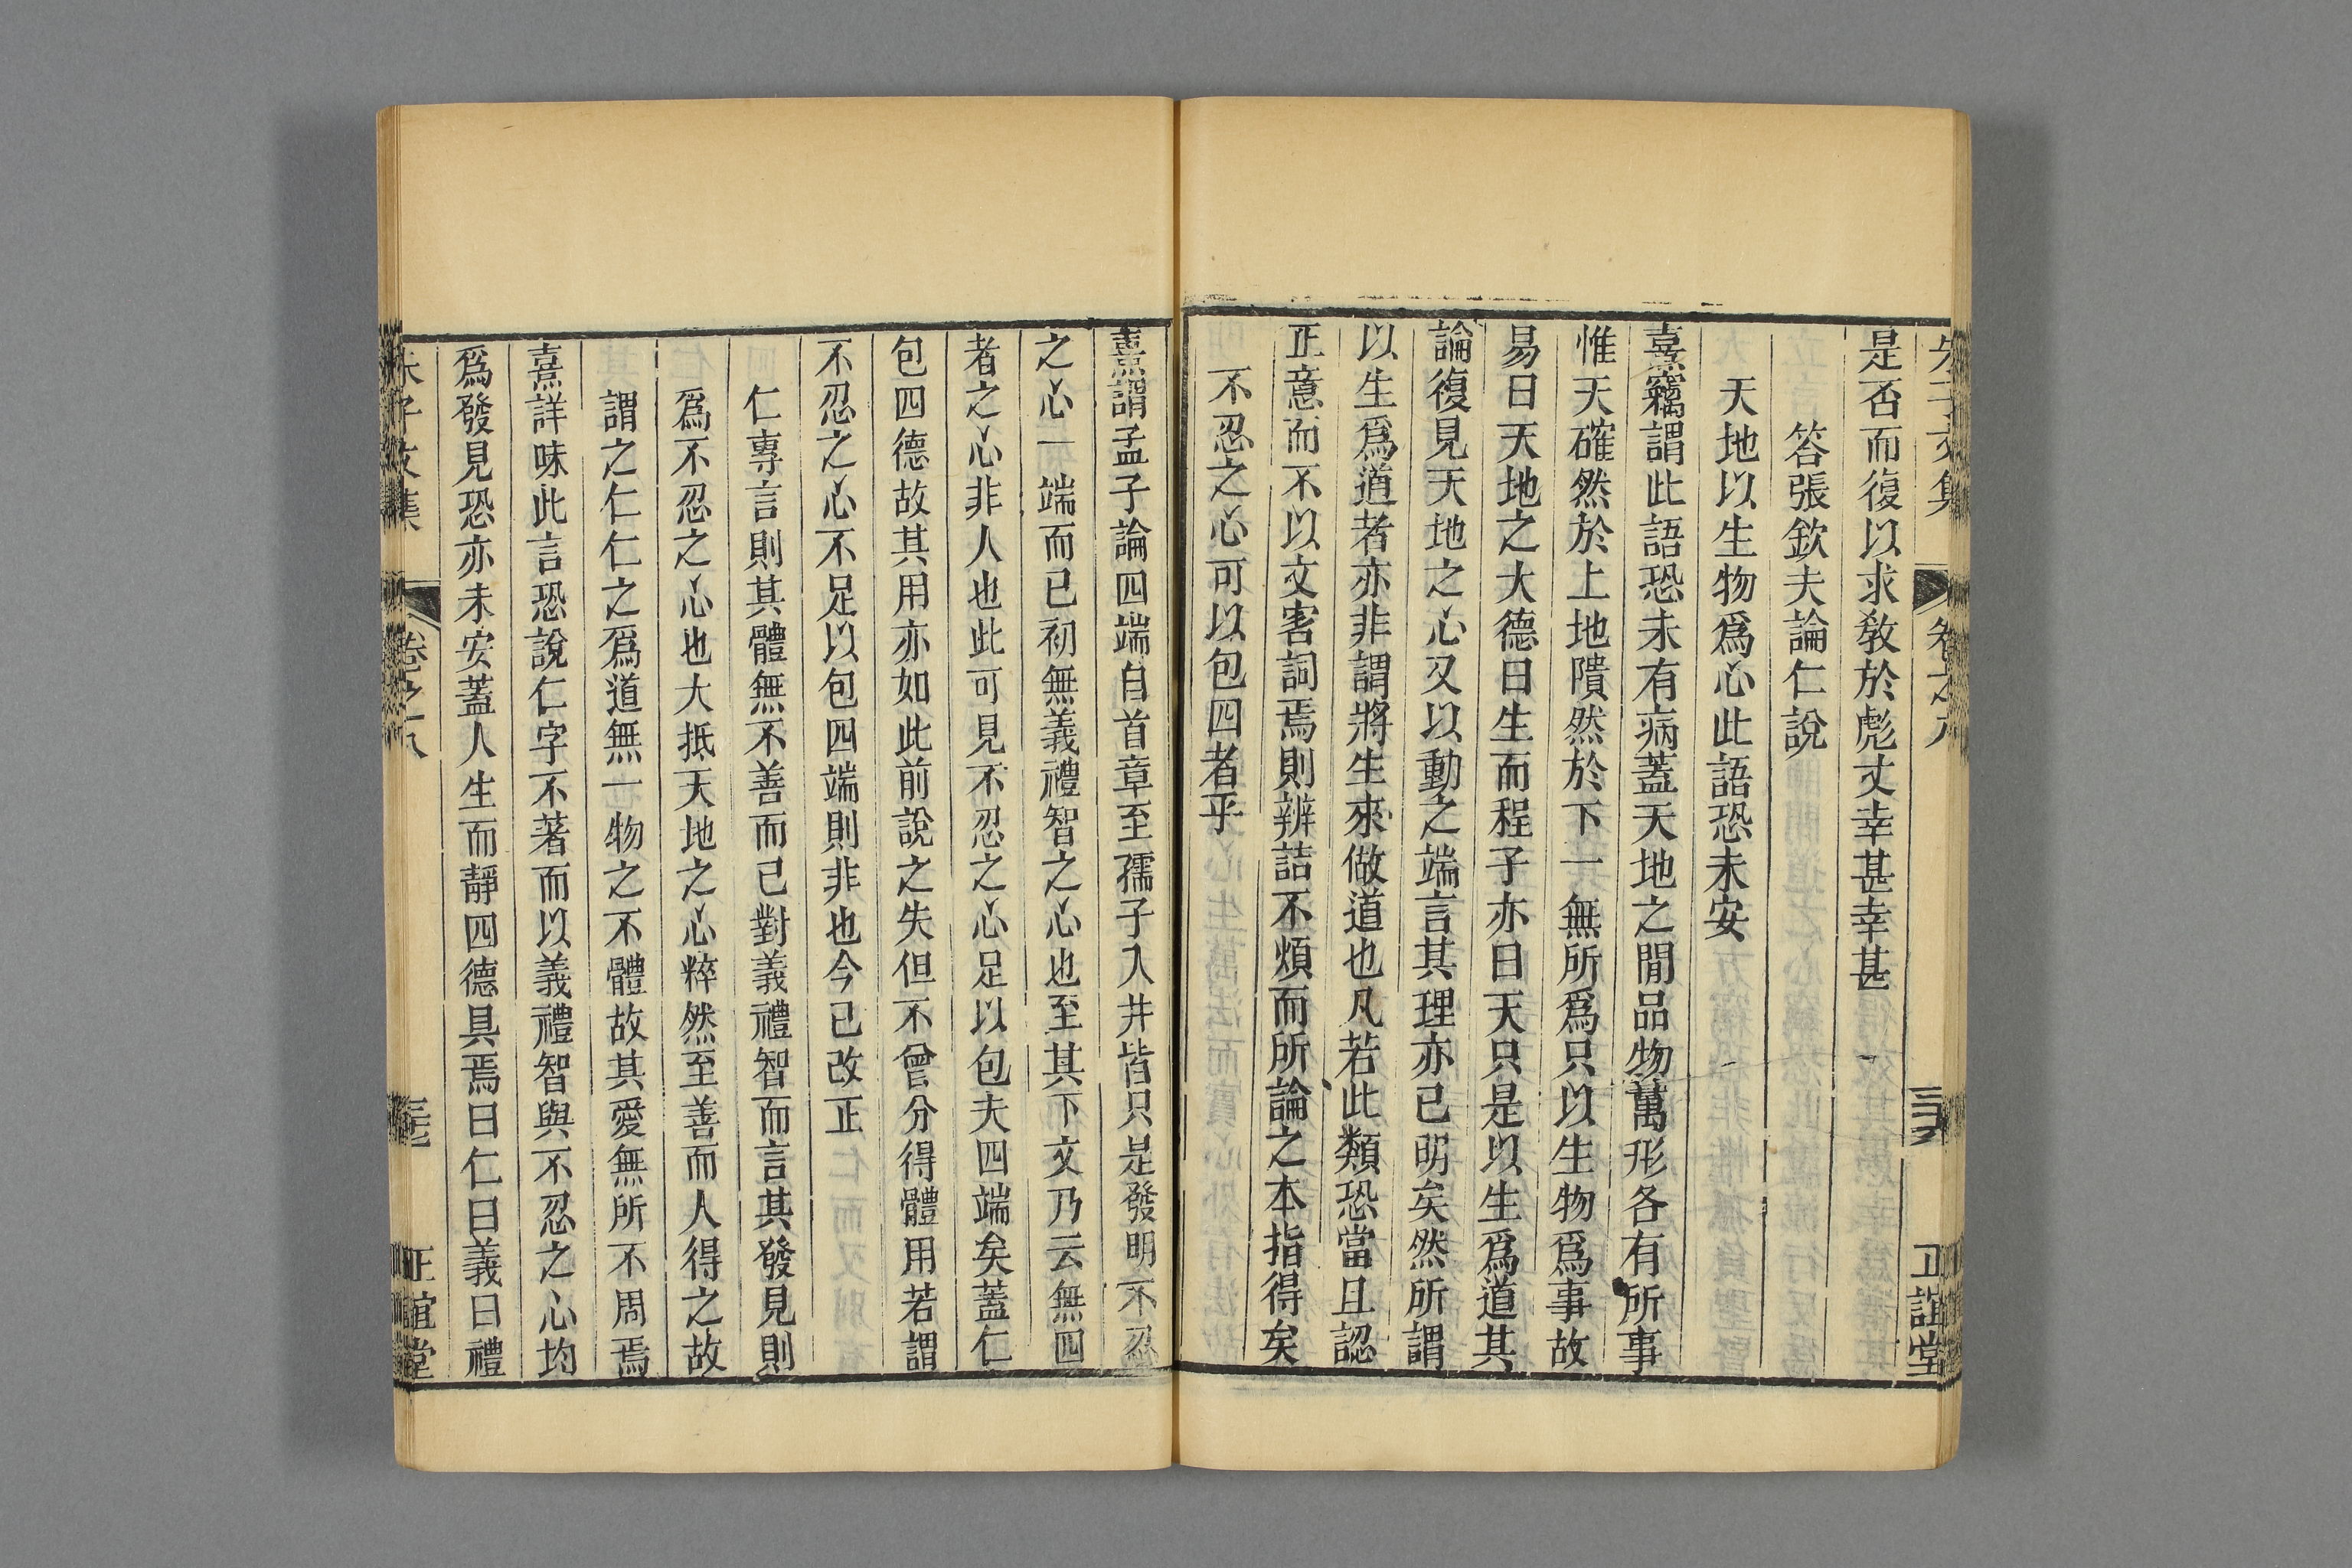 是否而復以求敎於彪丈幸甚幸甚
答張欽夫論仁說
天地以生物爲心此語恐未安
熹竊謂此語恐未有病蓋天地之閒品物萬形各有所事
惟天確然於上地隤然於下一無所爲只以生物爲事故
易曰天地之大德曰生而程子亦曰天只是以生爲道其
論復見天地之心又以動之端言其理亦已明矣然所謂
以生爲道者亦非謂將生來做道也凡若此類恐當且認
正意而不以文害詞焉則辨詰不煩而所論之本指得矣
不忍之心可以包四者乎
熹謂孟子論四端自首章至孺子入井皆只是發明不忍
之心一端而已初無義禮智之心也至其下文乃云無四
者之心非人也此可見不忍之心足以包夫四端矣蓋仁
包四德故其用亦如此前說之失但不曾分得體用若謂
不忍之心不足以包四端則非也今已改正
仁專言則其體無不善而已對義禮智而言其發見則
爲不忍之心也大抵天地之心粹然至善而人得之故
謂之仁仁之爲道無一物之不體故其愛無所不周焉
熹詳味此言恐說仁字不著而以義禮智與不忍之心均
爲發見恐亦未安蓋人生而靜四德具焉曰仁曰義曰禮
朱子文集
卷之八
正誼堂